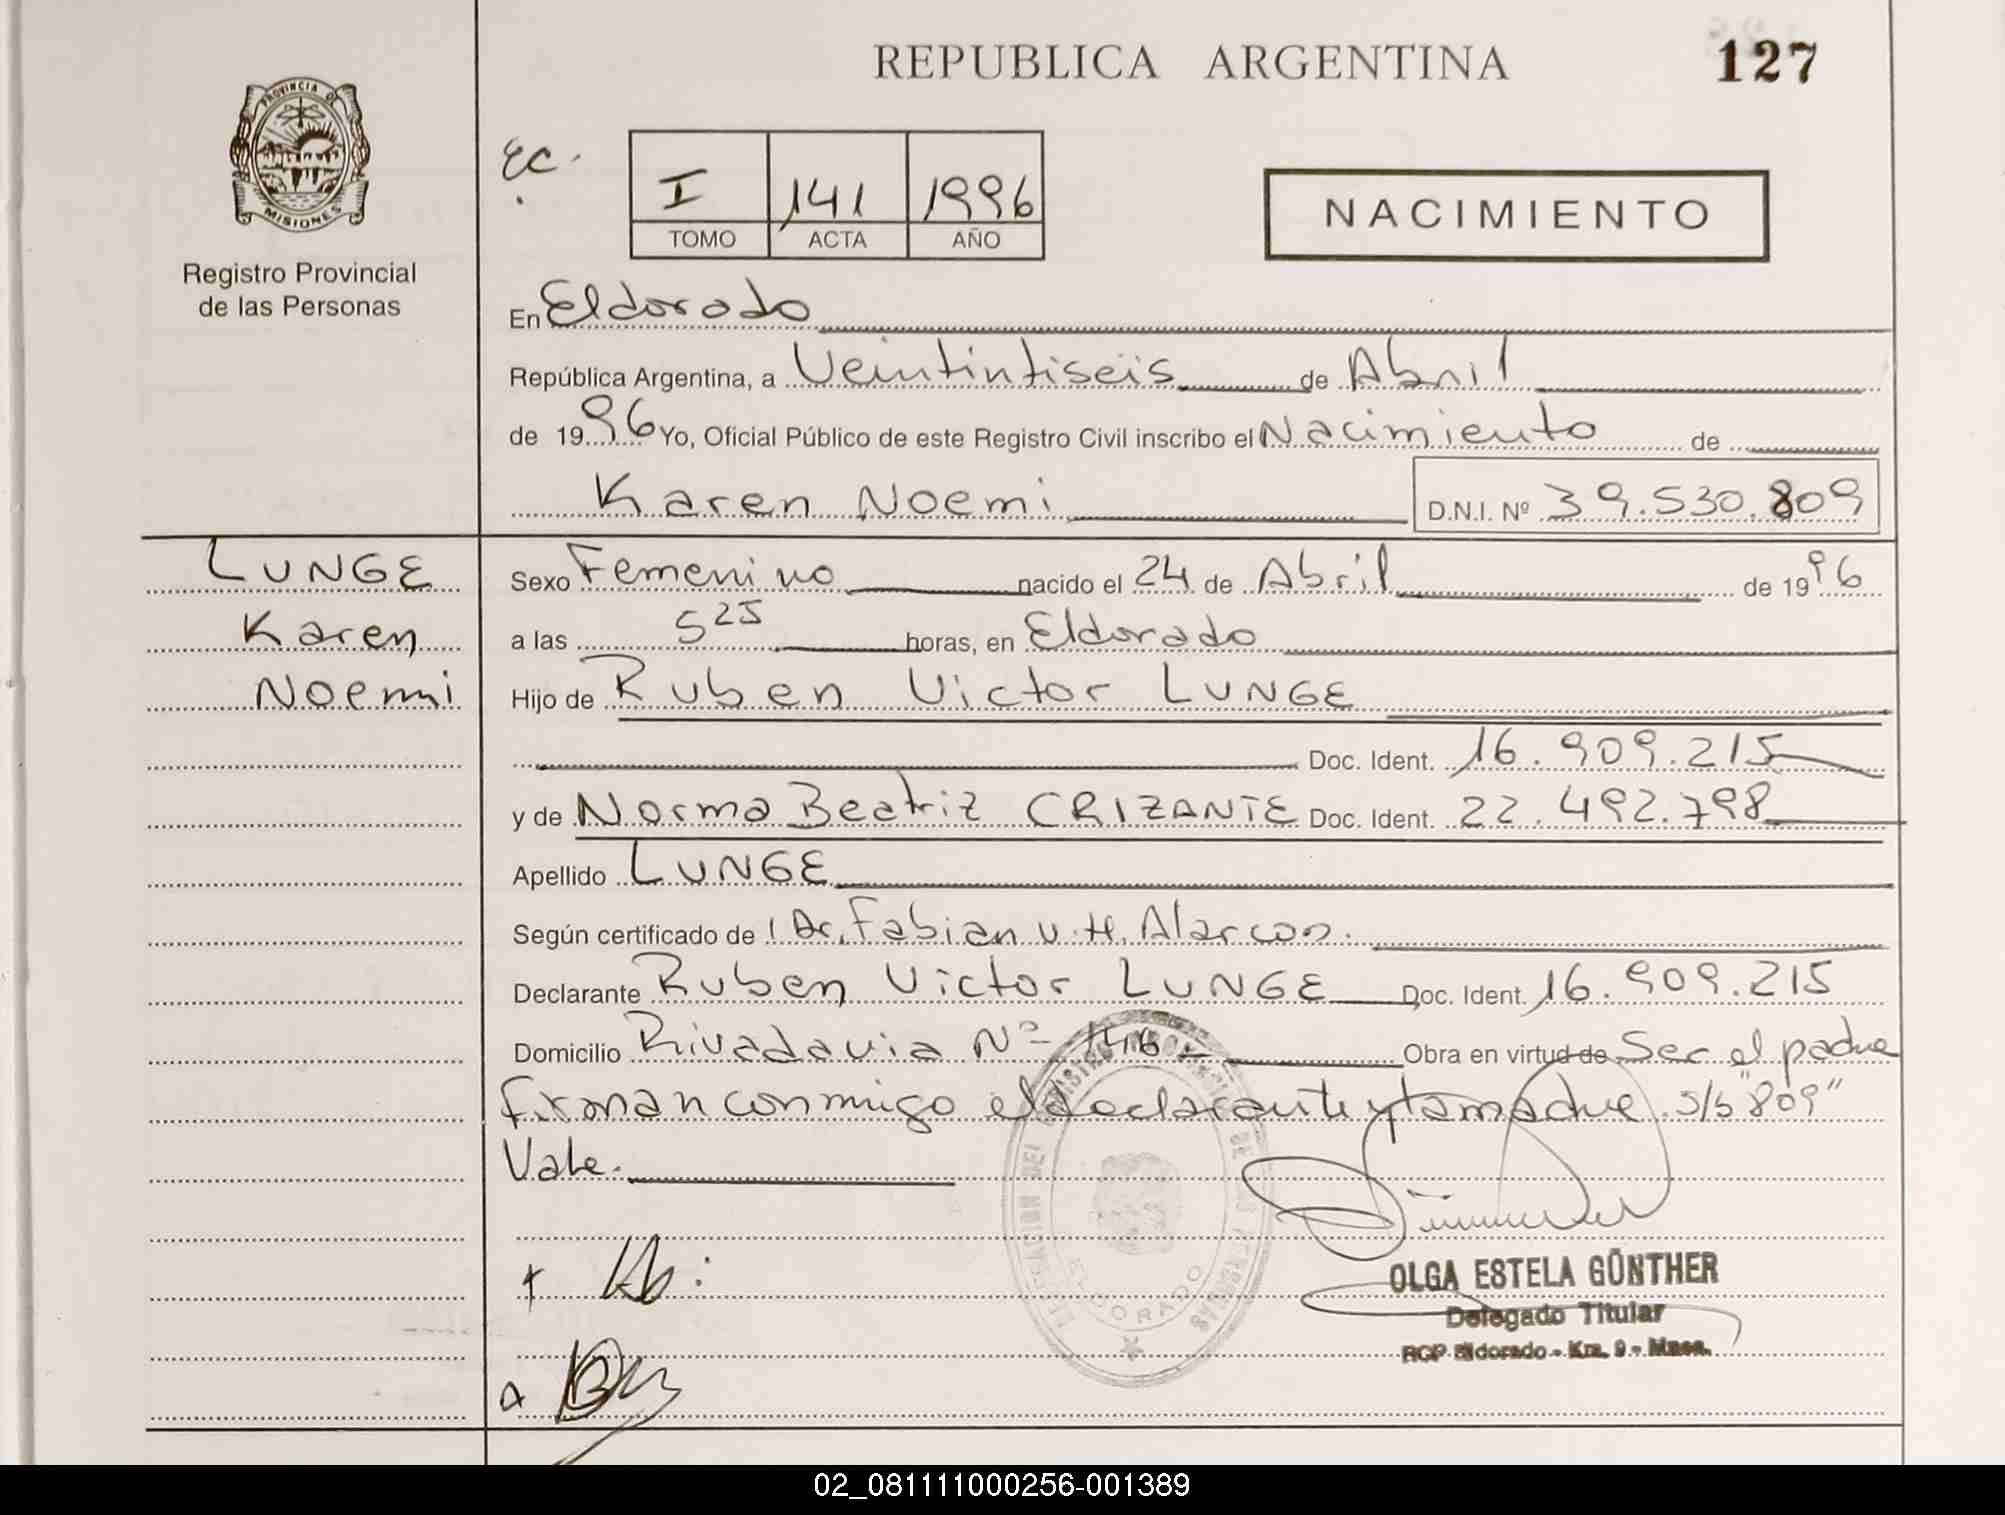 REPUBLICA ARGENTINA
127
PROVINCIA DE
MISIONES
Registro Provincial
de las Personas
I 141 1996
TOMO ACTA AÑO
NACIMIENTO
En Eldorado
República Argentina, a Veintintiseis de Abril
de 1996 Yo, Oficial Público de este Registro Civil inscribo el Nacimiento de
Karen Noemi D.N.I. Nº 39.530.809
LUNGE
Karen
Noemi
Sexo Femenino nacido el 24 de Abril de 1996
a las 5 25 horas, en Eldorado
Hijo de Ruben Victor LUNGE
Doc. Ident. 16.909.215
y de Norma Beatriz CRIZANTE Doc. Ident. 22.492.798
Apellido LUNGE
Según certificado de Dr. Fabian V. H. Alarcon.
Declarante Ruben Victor LUNGE Doc. Ident. 16.909.215
Domicilio Rivadavia Nº 146 Obra en virtud de Ser el padre
firman conmigo el declarante y la madre. s/b "809"
Vale.
ELDORADO
OLGA ESTELA GÜNTHER
Delegado Titular
RCP Eldorado - Km. 9 - Mnes.
02_081111000256-001389